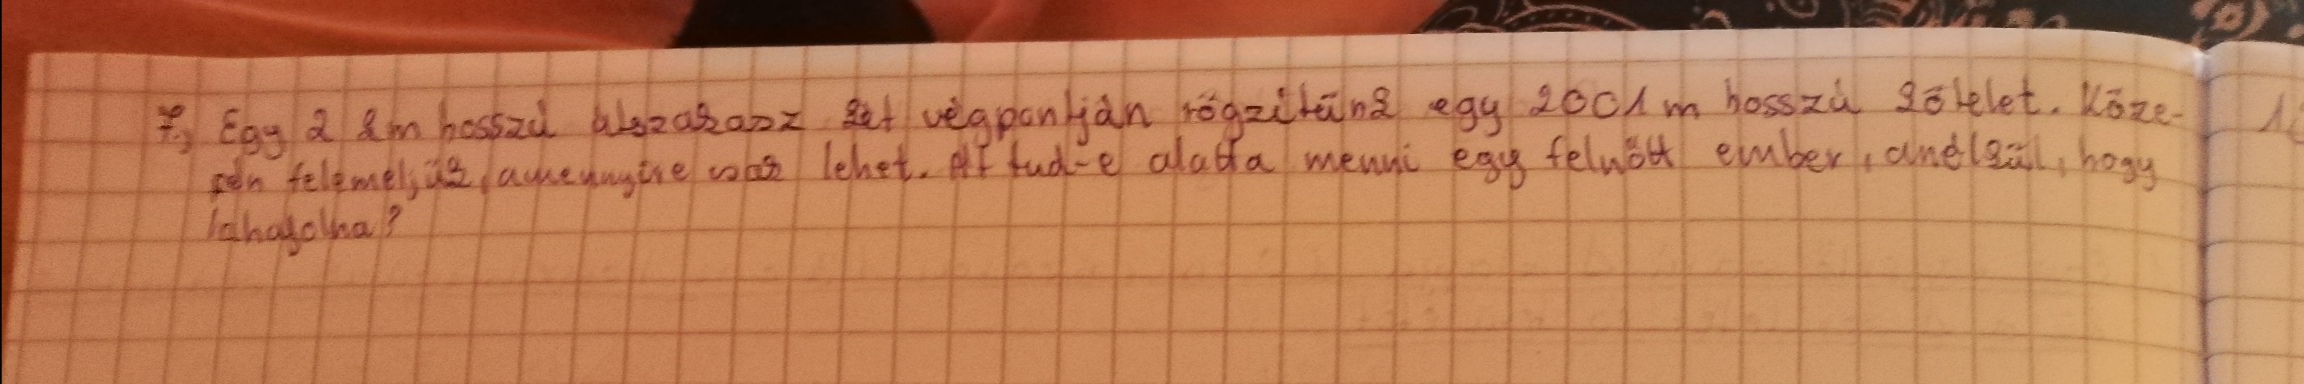 7, Egy 2 km hosszú útszakasz két végpontján rögzítünk egy 2001 m hosszú kötelet. Köze-
pén felemeljük, amennyire csak lehet. Át tud-e alatta menni egy felnőtt ember, anélkül, hogy
lehajolna?